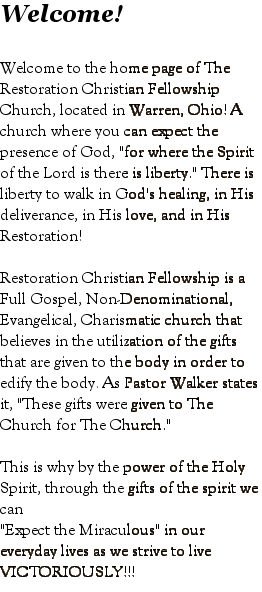 Welcome!
Welcome to the home page of The
Restoration Christian Fellowship
Church, located in Warren, Ohio! A
church where you can expect the
presence of God, "for where the Spirit
of the Lord is there is liberty." There is
liberty to walk in God's healing, in His
deliverance, in His love, and in His
Restoration!
Restoration Christian Fellowship is a
Full Gospel, Non-Denominational,
Evangelical, Charismatic church that
believes in the utilization of the gifts
that are given to the body in order to
edify the body. As Pastor Walker states
it, "These gifts were given to The
Church for The Church."
This is why by the power of the Holy
Spirit, through the gifts of the spirit we
can
"Expect the Miraculous" in our
everyday lives as we strive to live
VICTORIOUSLY!!!